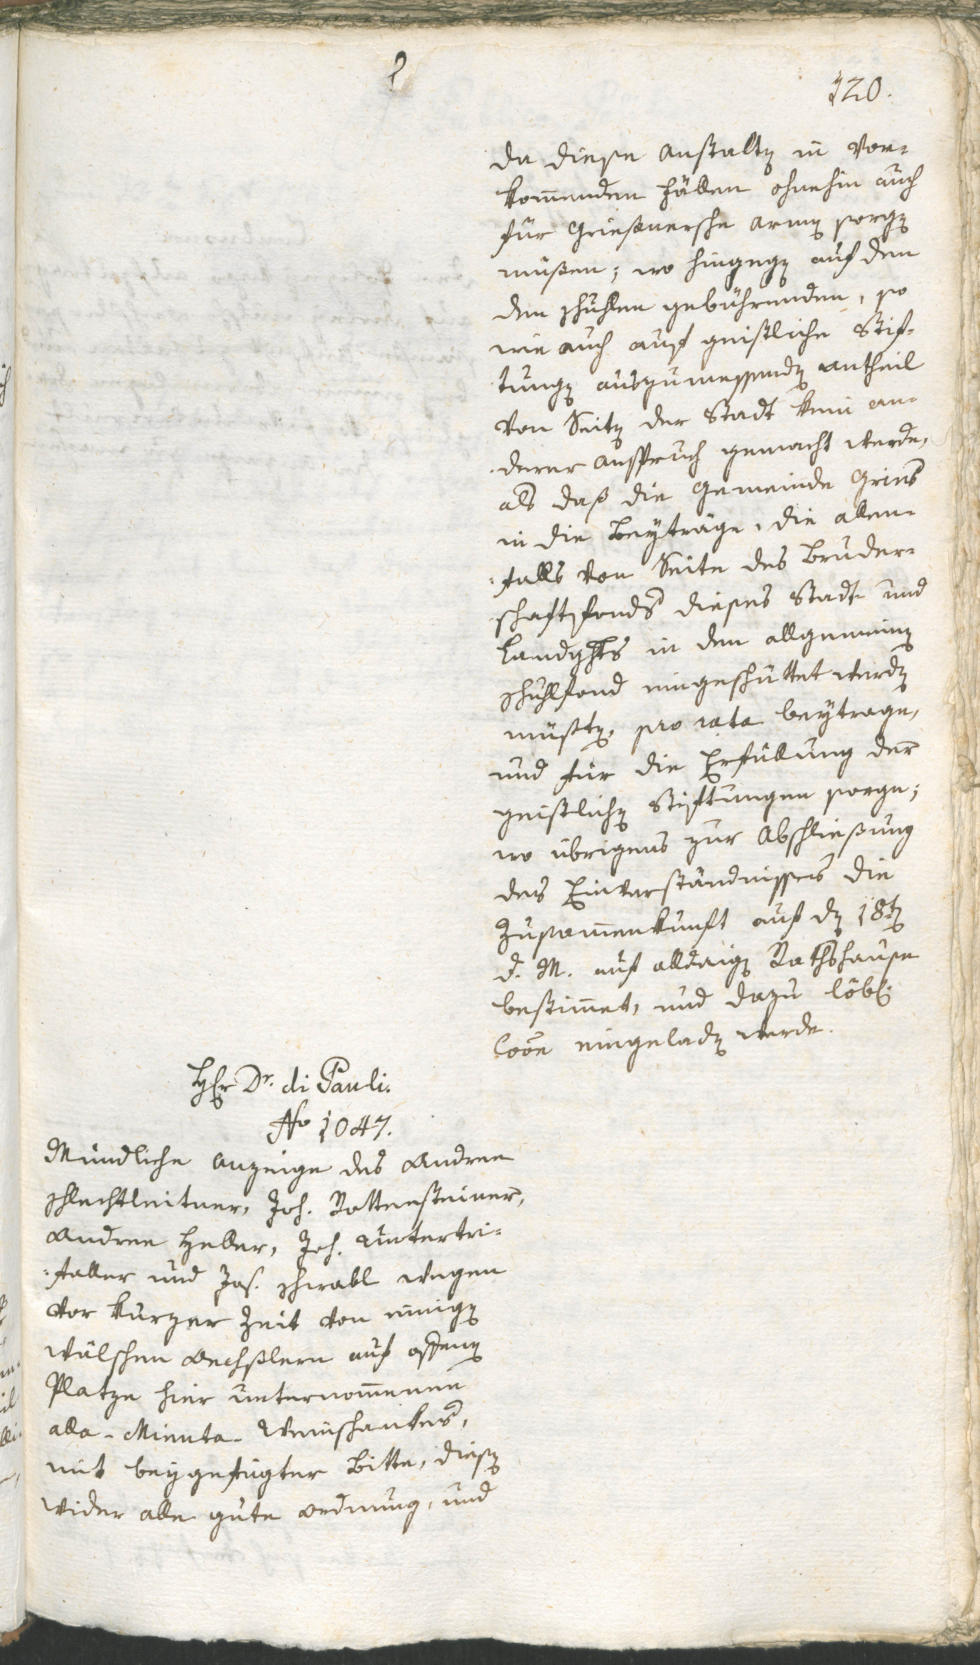 120.
da diese Anstalten in vor-
kommenden Fällen ohnehin auch
für Griesnersche Armen sorgen
müßen; wo hingegen auf den
den Schulen gebührenden, so
wie auch auf geistliche Stif-
tungen auszumessenden Antheil
von Seiten der Stadt kein an-
derer Anspruch gemacht werde,
als daß die Gemeinde Gries
in die Beyträge, die allen-
falls von Seite des Bruder-
schaftsfonds dieses Stadt und
Landghts in den allgemeinen
Schulfond eingeschüttet werden
müßten, pro rata beytrage,
und für die Erfüllung der
geistlichen Stiftungen sorge;
wo übrigens zur Abschließung
des Einverständnisses die
Zusammenkunft auf den 18ten
d. M. auf alldaigen Rathshause
bestimmet, und dazu löbl.
eingeladen werde.
Hr Dr. di Pauli.
No 1047.
Mündliche Anzeige des Andree
Schlechtleitner, Joh. Rottensteiner,
Andree Heller, Joh. Untertri-
faller und Jos. Schrabl wegen
vor kurzer Zeit von einigen
wälschen auf offenen
Platze hier unternommenen
alla-Minuta-Weinschankes,
mit beygefügter Bitte, diesen
wider alle gute Ordnung, und